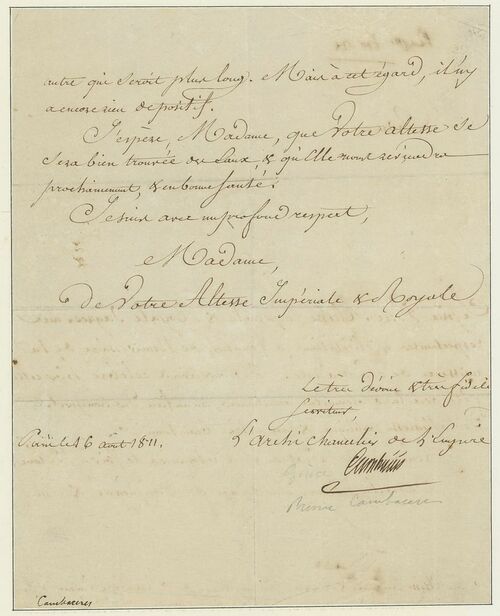 autre qui seroit plus long. Mais à cet égard, il n'y
a encore rien de positif.
J'espère, Madame, que Votre altesse se
sera bien trouvée des Eaux, & qu'Elle nous reviendra
prochainement, & en bonne santé.
Je suis avec un profond respect,
Madame,
De Votre Altesse Impériale & Royale
Le très dévoué & très fidele
serviteur,
L'archi chancelier de l'Empire
Paris le 6 août 1811.
Cambacérès
Prince Cambaceres
Cambaceres